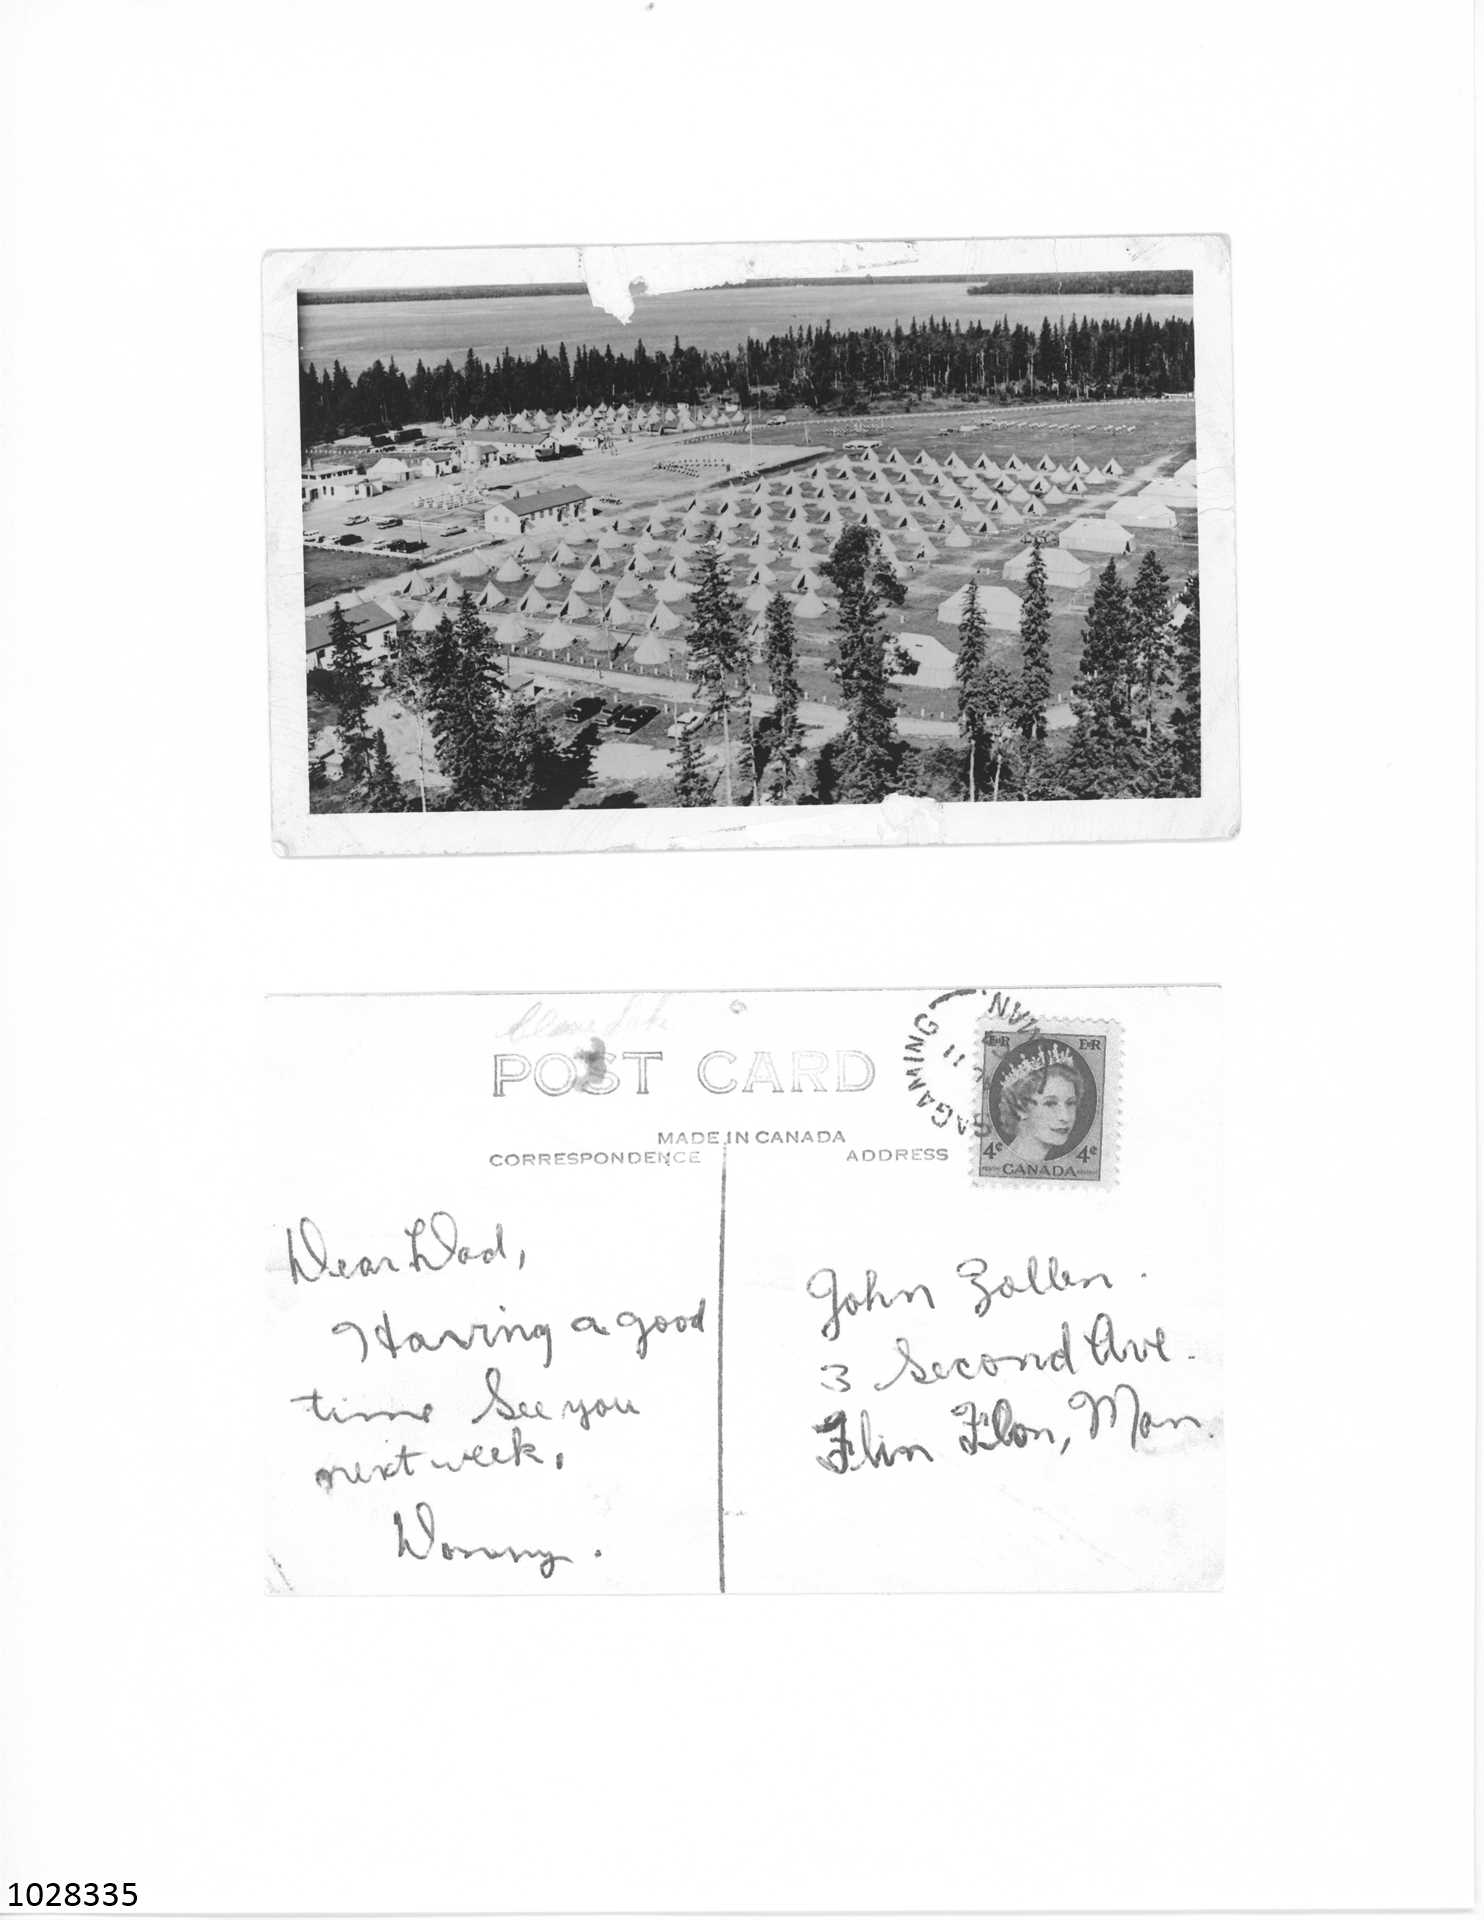 Clear Lake
POST CARD
MADE IN CANADA
CORRESPONDENCE
ADDRESS
WASAGAMING MAN.
11
EIIR EIIR
4¢ 4¢
CANADA
Dear Dad,
Having a good
time See you
next week.
Donny.
John Zollen.
3 Second Ave.
Flin Flon, Man.
1028335